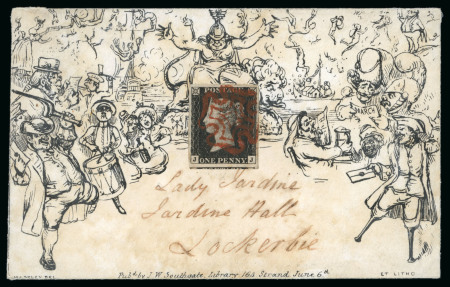 POSTAGE
J J
ONE PENNY
Lady Jardine
Jardine Hall
Lockerbie
Pubd. by J. W. Southgate, Library 164 Strand June 6th
LITHO.